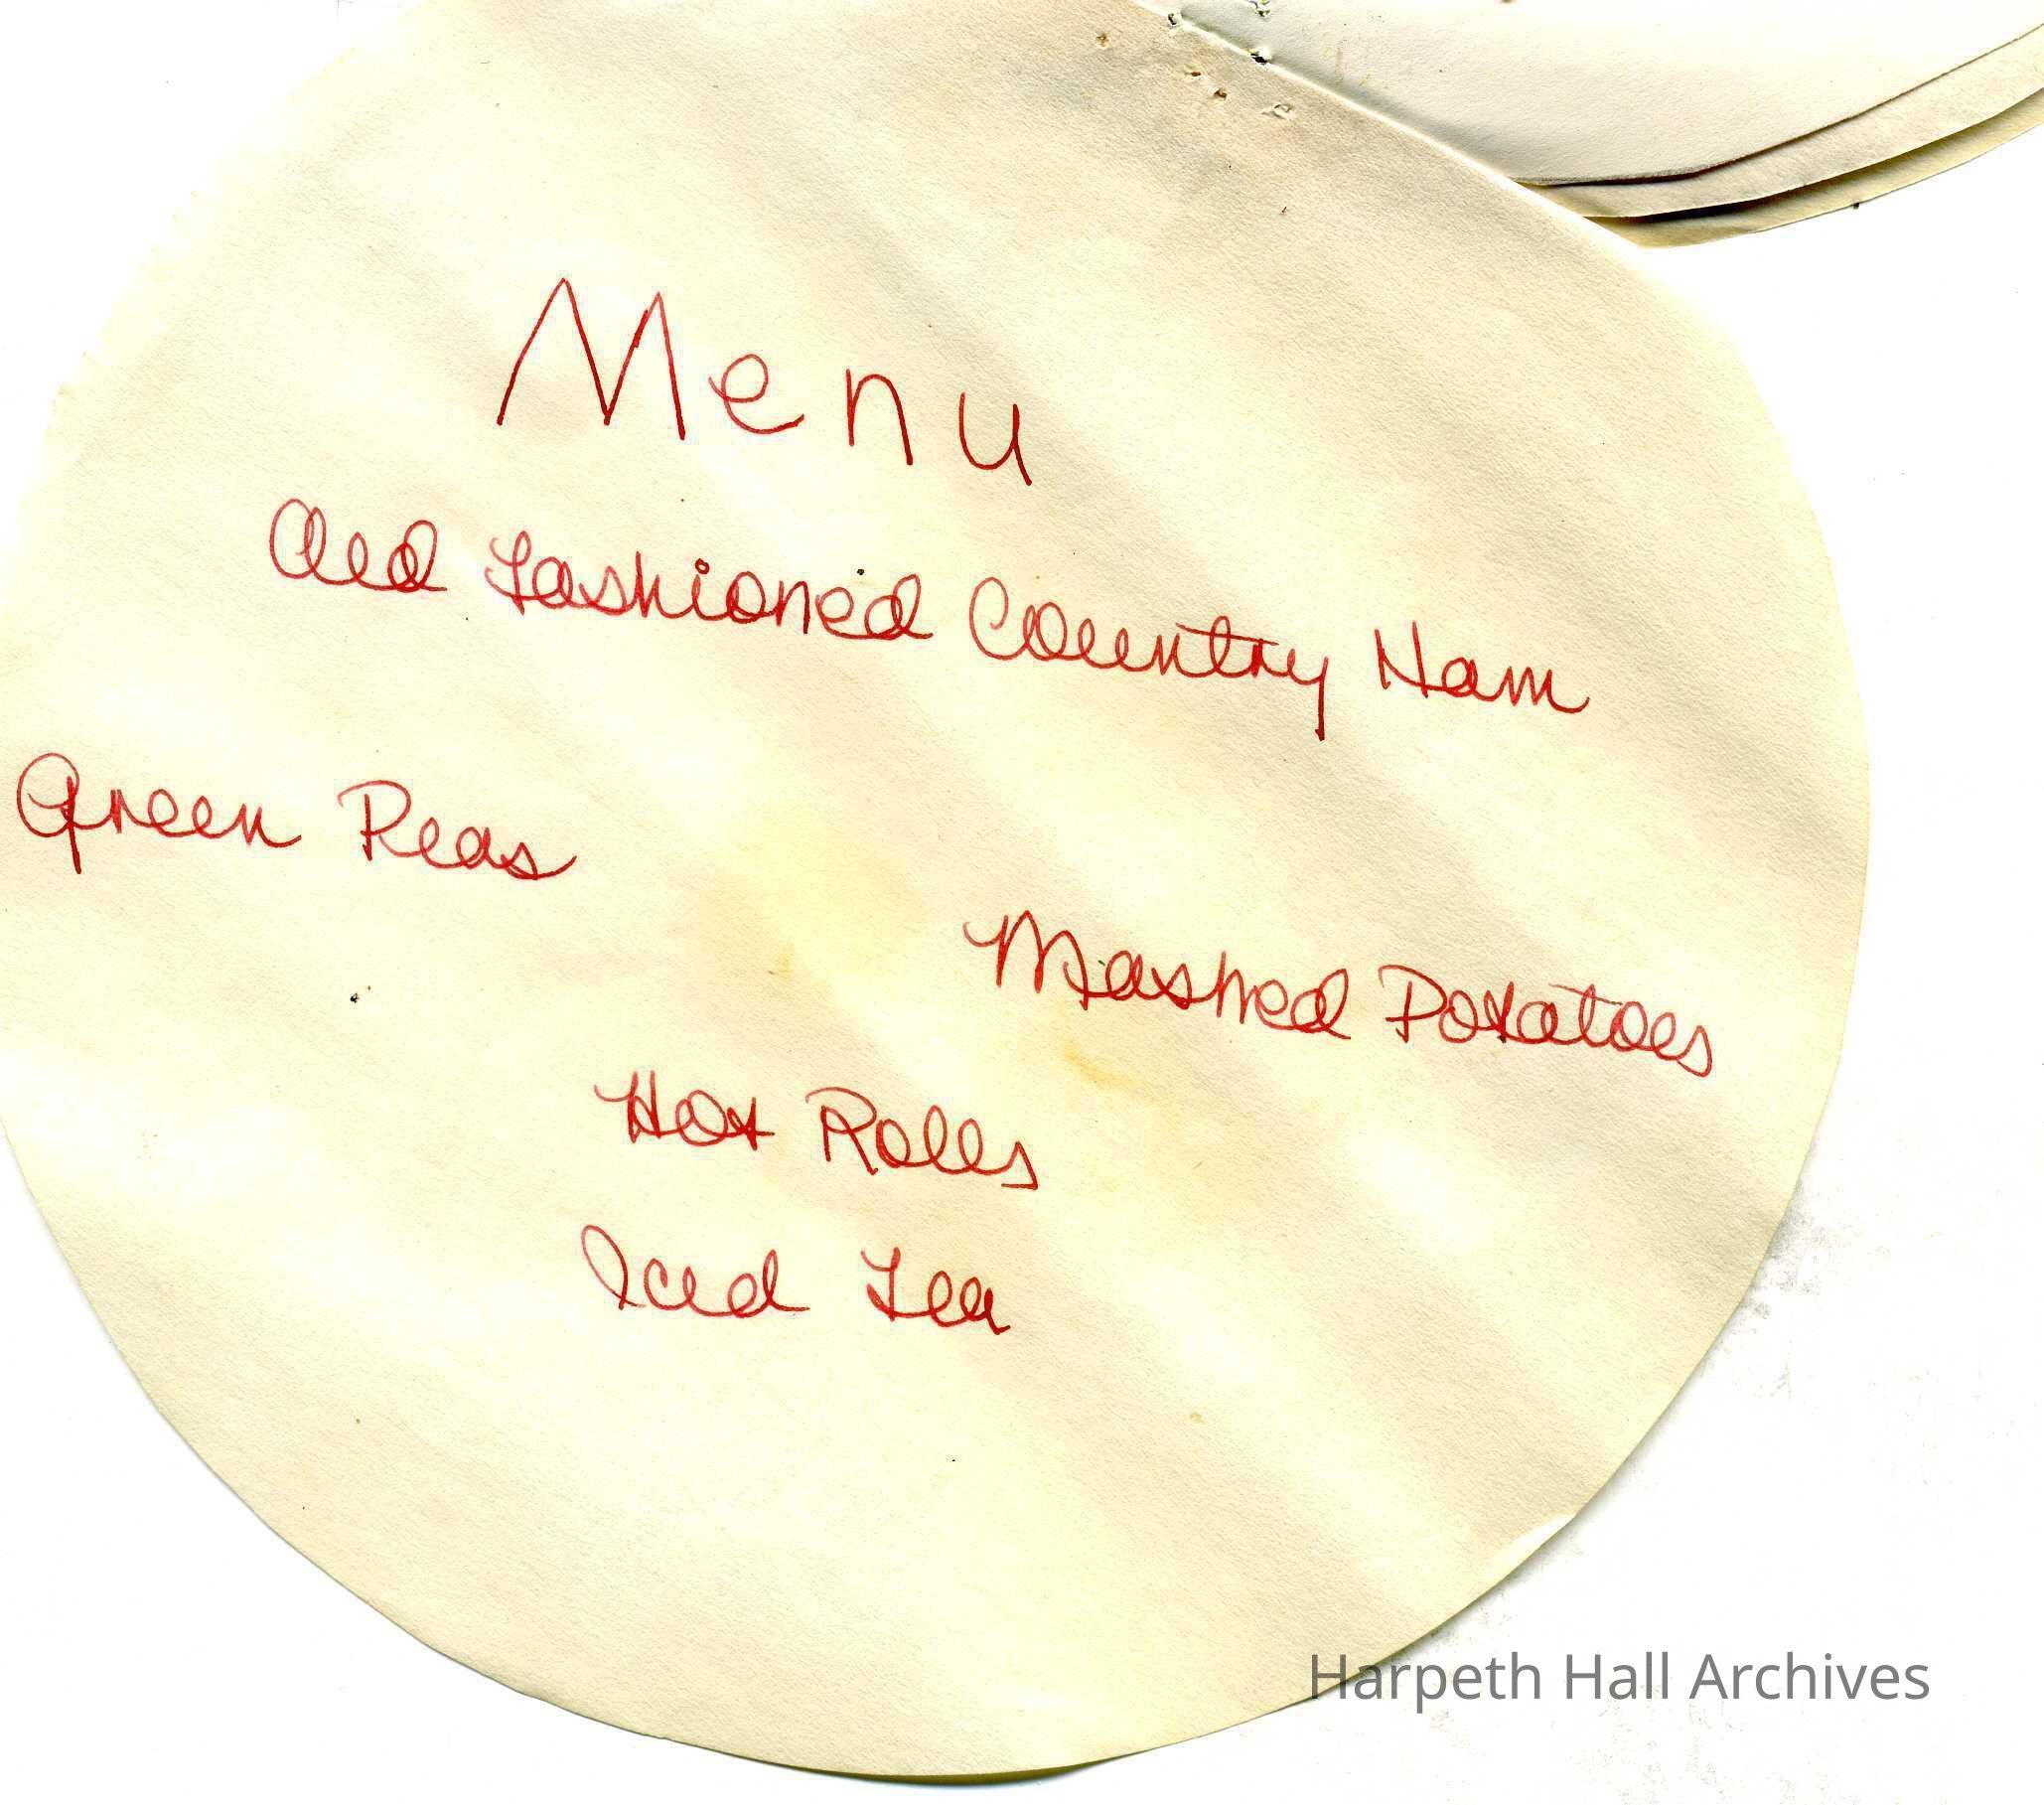 Menu
Old Fashioned Country Ham
Green Peas
Mashed Potatoes
Hot Rolls
Iced Tea
Harpeth Hall Archives